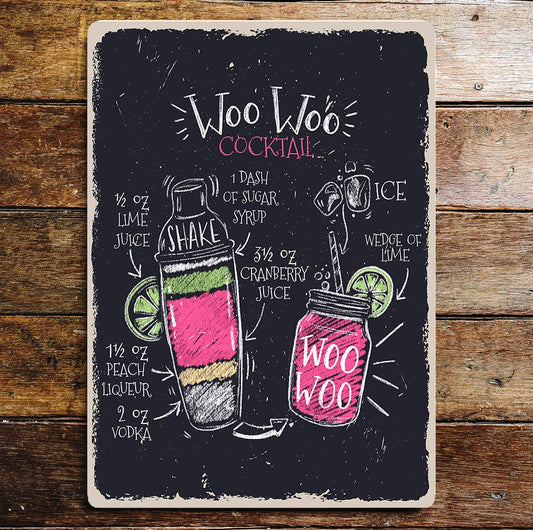 Woo Woo
COCKTAIL
½ OZ
LIME
JUICE
1 DASH
OF SUGAR
SYRUP
ICE
SHAKE
3½ OZ
CRANBERRY
JUICE
WEDGE OF
LIME
1½ OZ
PEACH
LIQUEUR
2 OZ
VODKA
WOO
WOO